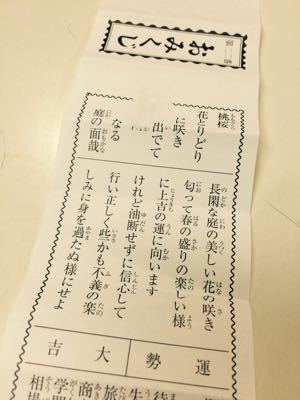 おみくじ
桃桜
花とりどり
に咲き
出でて
なる
庭の面哉
長閑な庭の美しい花の咲き
匂って春の盛りの楽しい様
に上吉の運に向います
けれど油断せずに信心して
行い正しく些かも不義の楽
しみに身を過たぬ様にせよ
運勢
大吉
待
旅
商
学問
相場